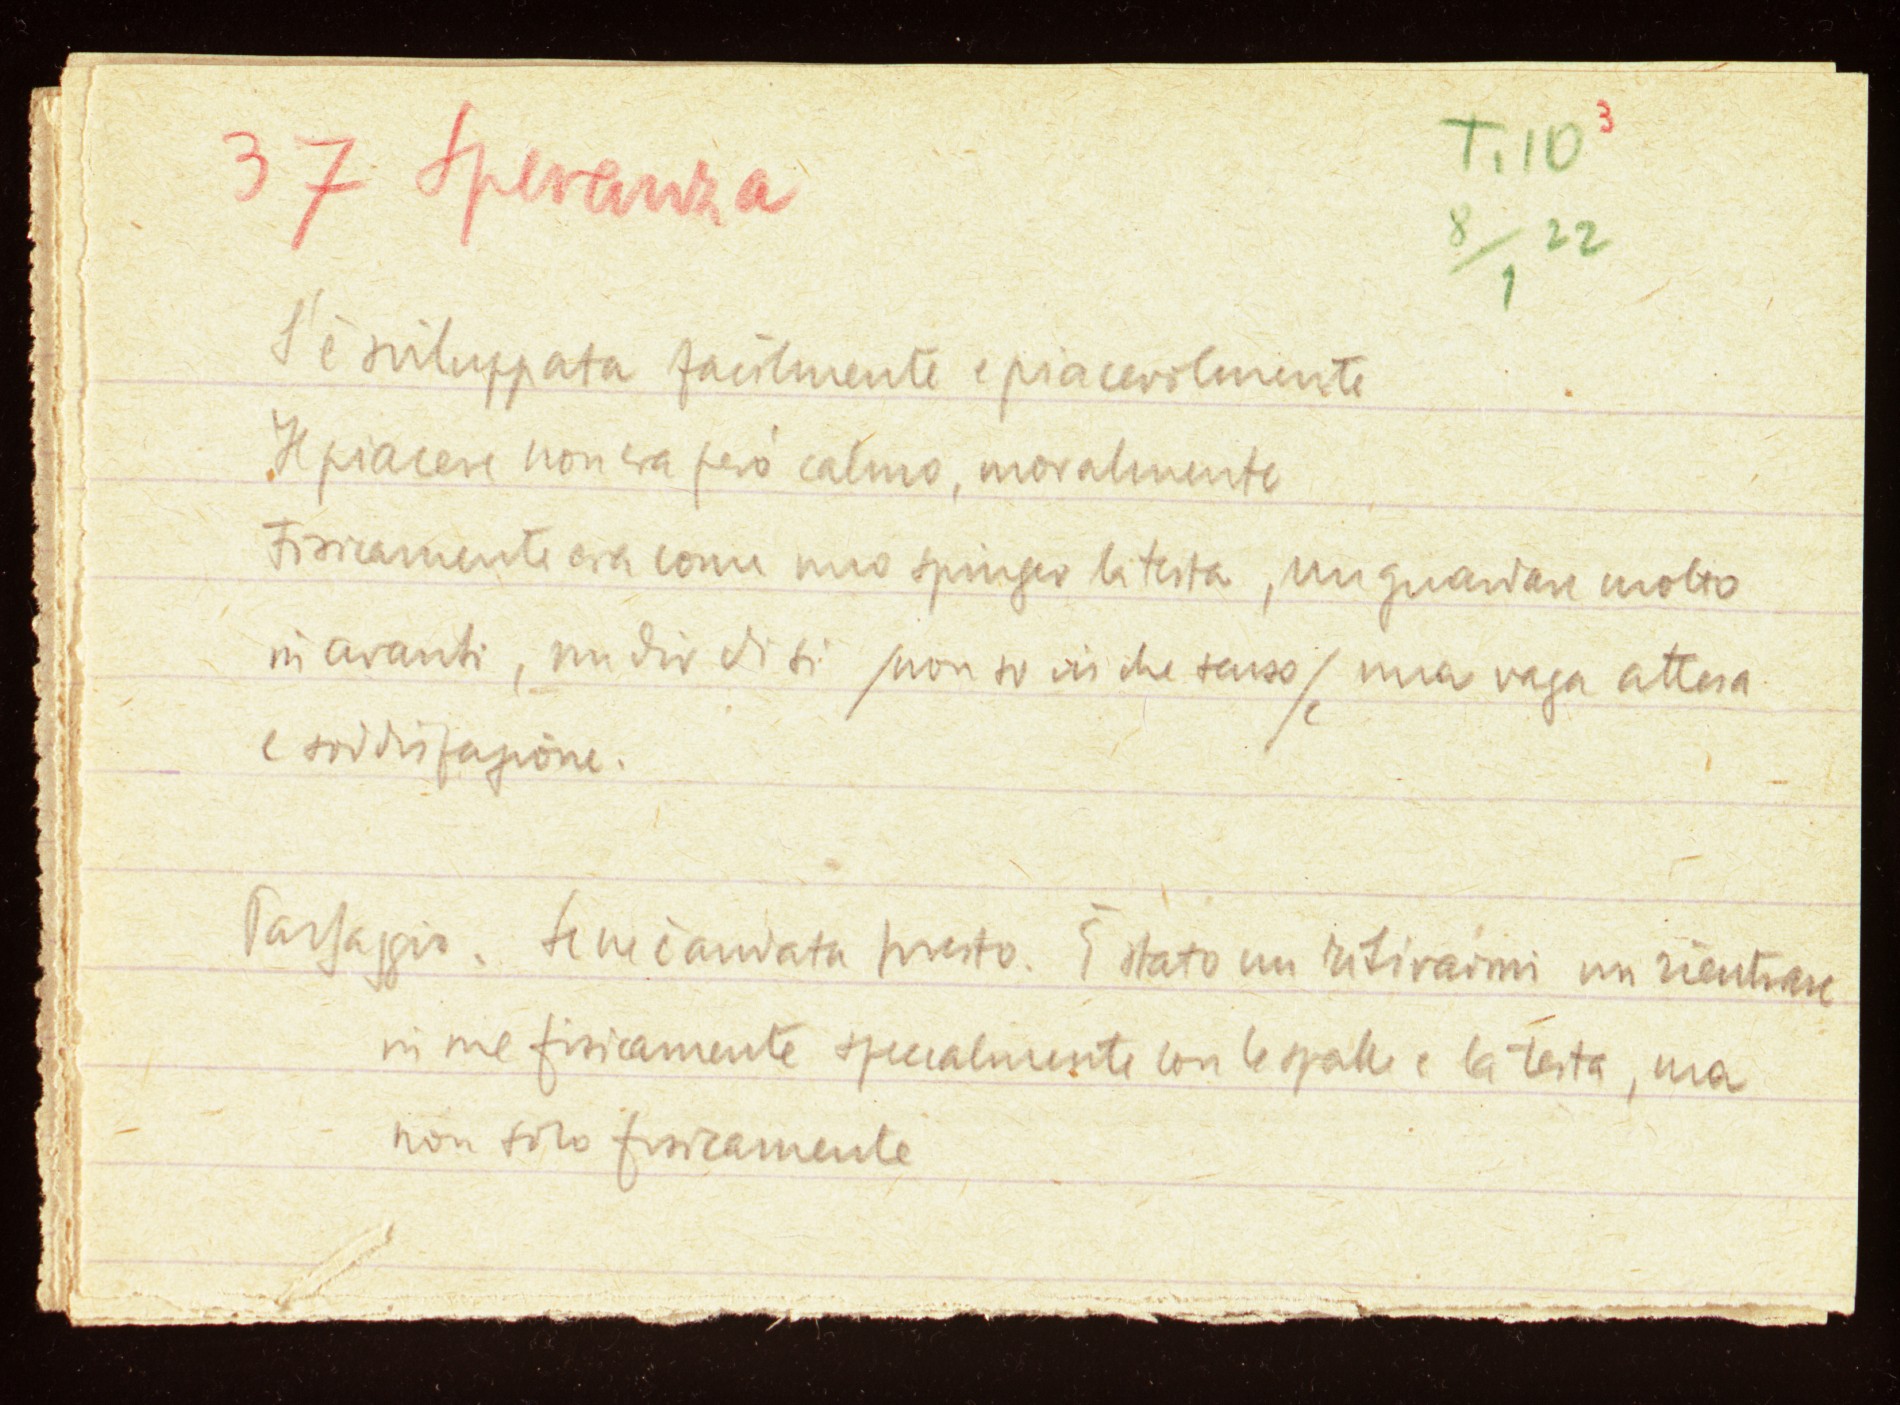 37 Speranza
T. 10³
8/1 22
S'è sviluppata facilmente e piacevolmente
Il piacere non era però calmo, moralmente
Fisicamente era come uno spinger la testa, un guardare molto
in avanti, un dir di si /non so in che senso/ e una vaga attesa
e soddisfazione.
Passaggio. Se ne è andata presto. È stato un ritirarmi un rientrare
in me fisicamente specialmente con le spalle e la testa, ma
non solo fisicamente